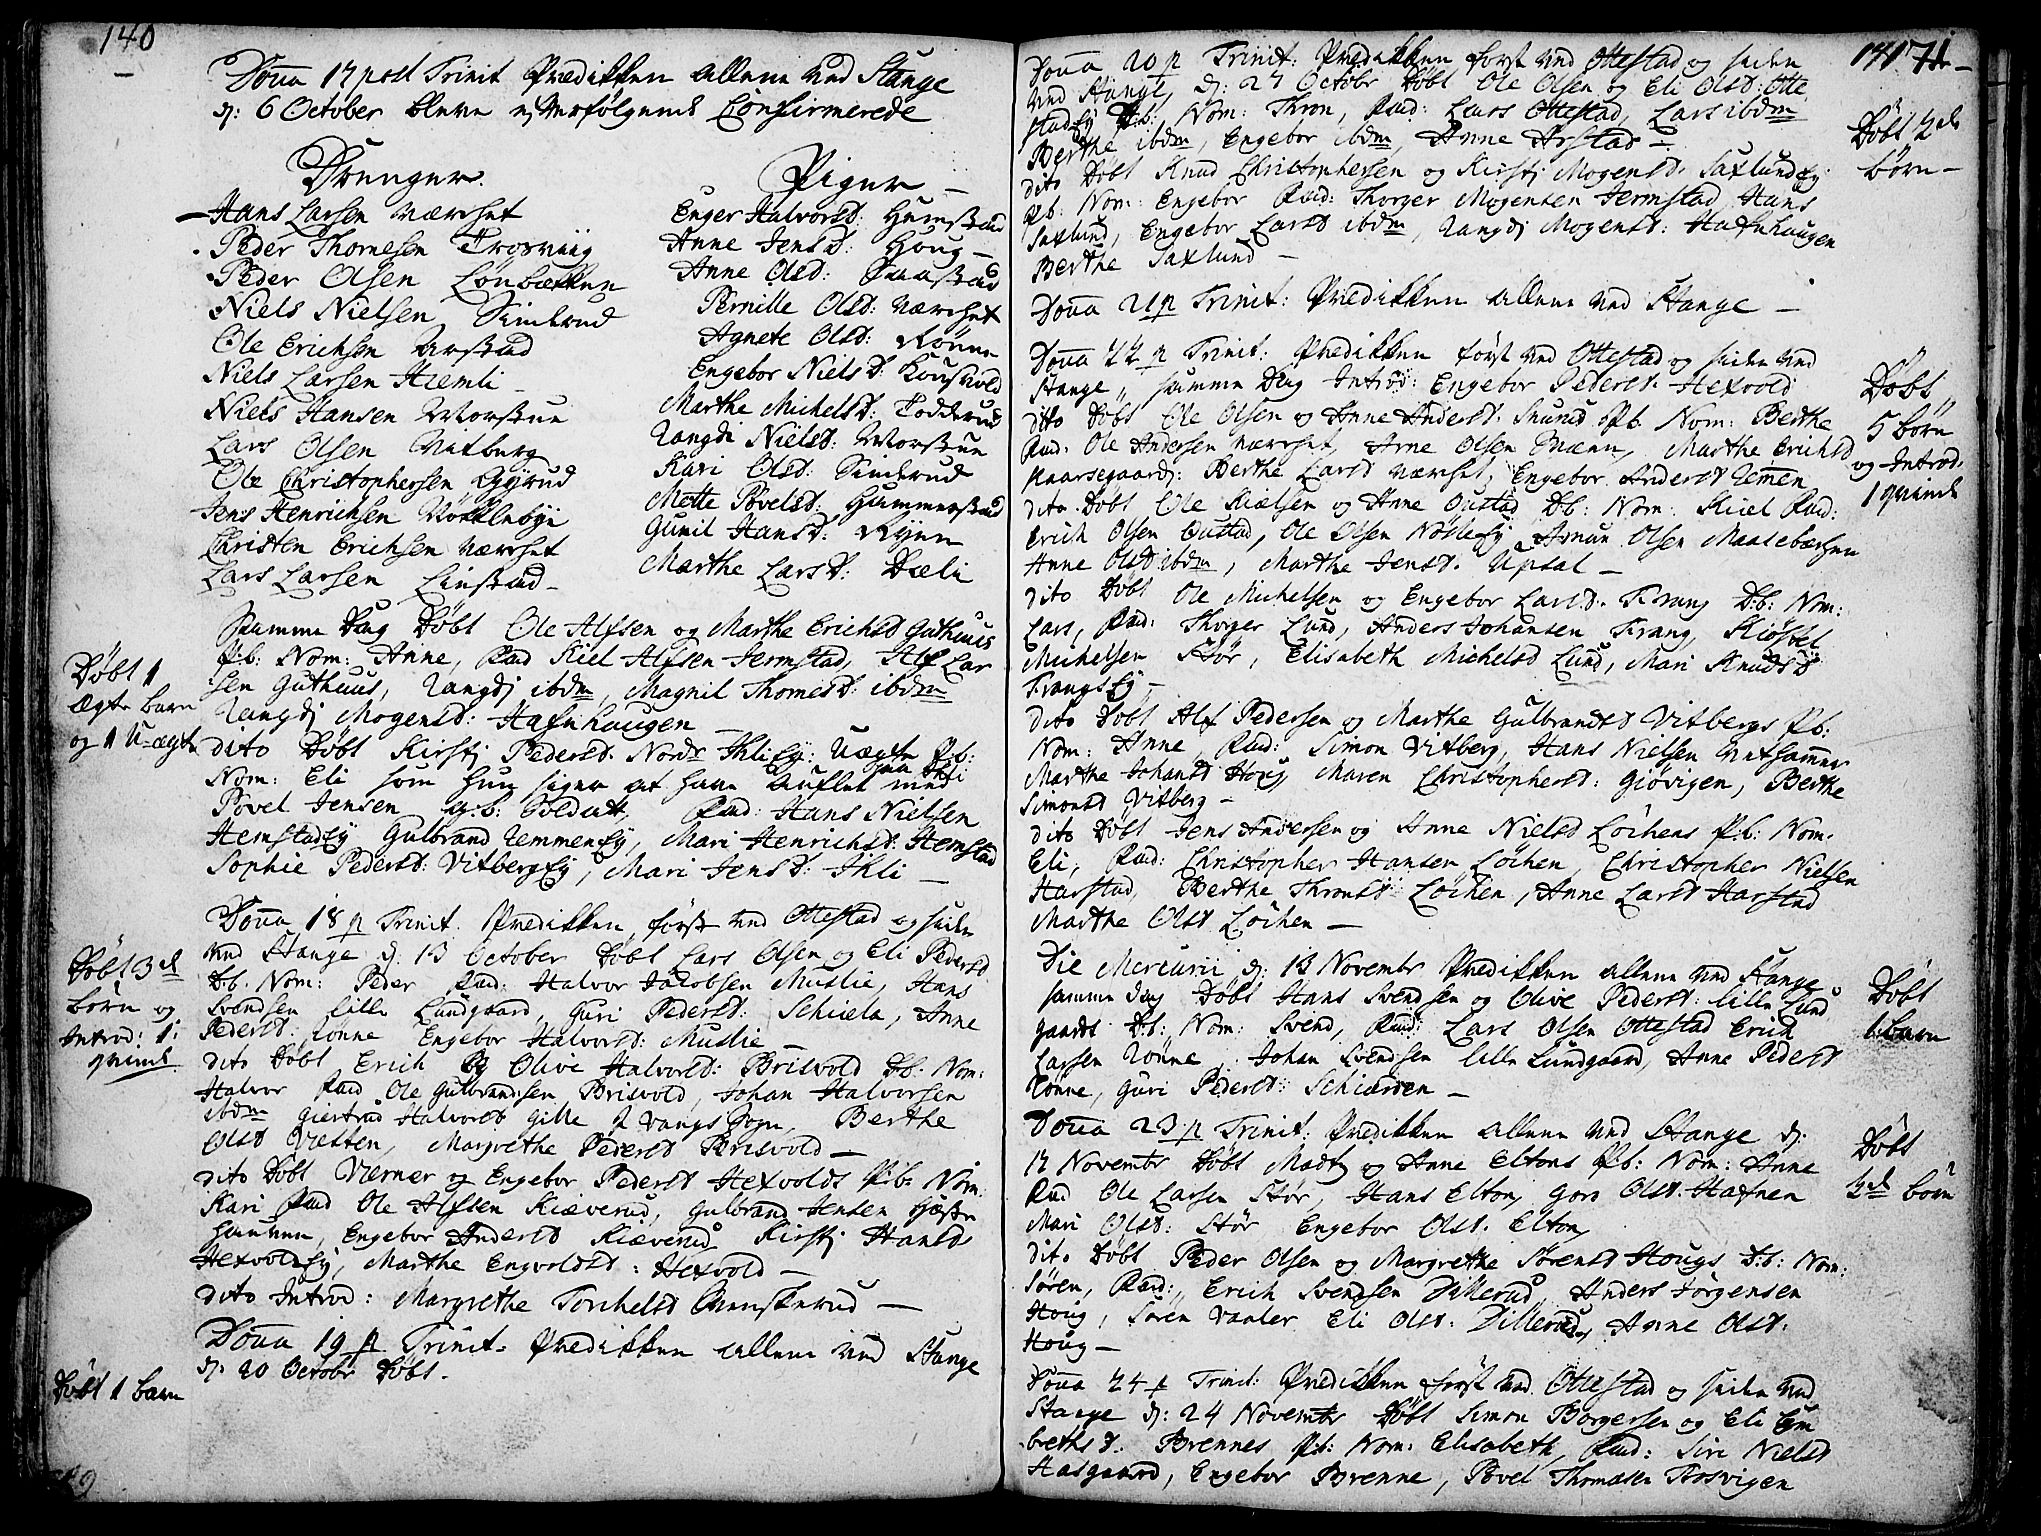 140
Dom̄a 17 post Trinit Prædikken allene ved Stange
d: 6 October bleve efterfølgende Confirmerede
Drenger.
Hans Larsen Nærset
Peder Thomesen Trosviig
Peder Olsen Lønbækken
Niels Nielsen Simerud
Ole Erichsen Arstad
Niels Larsen Hiemli
Niels Hansen Morstue
Lars Olsen Vitberg
Ole Christophersen Gÿrud
Jens Henrichsen Nökklebÿe
Christen Erichsen Nærset
Lars Larsen Linstad
Piger
Enger Halvorsd: Humstad
Anne Jensd: Houg
Anne Olsd: Raastad
Pernille Olsd: Nærset
Agnete Olsd: Rönne
Engebor Nielsd: Kousvold
Marthe Michelsd: Todderud
Rangdi Nielsd: Morstue
Kari Olsd: Simerud
Mette Povelsd: Hummerstad
Gunil Hansd: Rÿnne
Marthe Larsd: Dæli
Samme Dag Døbt Ole Alfsen og Marthe Erichsd Guthuus
Pb: Nom: Anne, Fad Kiel Alfsen Jermstad, Alf Lar
sen Guthuus, Rangdj ibdm, Magnil Thomesd: ibdm
Rangdj Mogensd: Hafnhaugen
Døbt 1
Ægte barn
og 1 U-ægte
dito Døbt Kirstj Pedersd. Nordr Ihlie Ey: Uægte Pb:
Nom: Eli som hun siger at have auflet med
Povel Jensen g.b: Soldatt, Fad: Hans Nielsen
HemstadEy Gulbrand RemmenEy, Mari Henrichsd: Hemstad
Sophie Pedersd: VitbergEy, Mari Jensd: Ihli
Dom̄a 18 p Trinit. Prædikken først ved Ottestad og siden
ved Stange d. 13 October Døbt Lars Olsen og Eli Pedersd
Db. Nom: Peder Fad: Halvor Jacobsen Muslie, Hans
Svendsen Lille Lundgaard, Guri Pedersd: Schiela, Anne
Pedersd: Rönne Engebor Halvorsd: Muslie
Døbt 3de
børn og
Introd: 1
qvinde
dito Døbt Erich og Olive Halvorsd: Brisvold Db: Nom:
Halvor Fad Ole Gulbrandsen Brisvold, Johan Halvorsen
ibdm Giertrud Halvorsd Gille i Vangs Sogn, Berthe
Olsd Væsten, Margrethe Pedersd Brisvold
dito Døbt Værner og Engebor Pedersd Hexvolds Pb: Nom:
Kari Fad Ole Alfsen Kiæverud, Gulbrand Jensen
Engebor Andersd Kiæverud Kirstj Hansd
HexvoldEy, Marthe Engvoldsd: Hexvold
dito Introd: Margrethe Torchelsd
Dom̄a 19 p Trinit. Prædikken allene ved Stange
d: 20 Octobr Døbt.
Døbt 1 barn
141 71
Dom̄a 20 p Trinit: Prædikken først ved Ottestad og siden
ved Stange, d: 27 Octobr Døbt Ole Olsen og Eli Olsd: Otte
stadEy Db: Nom: Thron, Fad: Lars Ottestad, Lars ibdm
Berthe ibdm, Engebor ibdm, Anne Arstad
dito Døbt Knud Christophersen og Kirstj Mogensd. SaxlundEy
Pb: Nom: Engebor Fad: Thorger Mogensen Jermstad, Hans
Saxlund, Engebor Larsd ibdm, Rangdj Mogensd: Hafnhaugen
Berthe Saxlund
Døbt 2de
børn
Dom̄a 21 p Trinit: Prædikken allene ved Stange
Dom̄a 22 p Trinit: Prædikken først ved Ottestad og siden ved
Stange, samme Dag Introd: Engebor Pedersd. Hexvold
dito Døbt Ole Olsen og Anne Andersd. Pb. Nom: Berthe
Fad. Ole Andersen Nærset, Arne Olsen, Marthe Erichsd
Berthe Larsd Nærset, Engebor Andersd Remen
Døbt
5 børn
og Introd.
1 qvinde
dito Døbt Ole Kielsen og Anne Oustad Db: Nom: Kiel Fad:
Erich Olsen Oustad, Ole Olsen NöslieEy Amun Olsen
Anne Olsd ibdm, Marthe Jensd. Upsal
dito Døbt Ole Michelsen og Engebor Larsd. Frang Db: Nom:
Lars, Fad: Thorger Lund, Anders Johansen Frang, Kiöstel
Michelsen Stör, Elisabeth Michelsd Lund, Mari Knudsd
FrangsEy
dito Døbt Alf Pedersen og Marthe Gulbrandsd Vitbergs Pb:
Nom: Anne, Fad: Simon Vitberg, Hans Nielsen
Marthe Johansd Houg Maren Christophersd: Giövigen, Berthe
Simonsd Vitberg
dito Døbt Jens Andersen og Anne Nielsd Löchens Pb: Nom.
Eli, Fad: Christopher Hansen Löchen, Christopher Nielsen
Harstad, Berthe Thronsd Löchen, Anne Larsd Harstad
Marthe Olsd Löchen
Die Mercurii d: 13 Novembr Prædikken allene ved Stange
samme dag Døbt Hans Svendsen og Olive Pedersd: Lille Lund
gaards Db: Nom: Svend, Fad: Lars Olsen Ottestad Erich
Larsen Rönne, Johan Svendsen Lille Lundgaard, Anne Pedersd
Rönne, Guri Pedersd: Schiærden
Døbt
1 barn
Dom̄a 23 p Trinit: Prædikken allene ved Stange d:
17 Novembr Døbt Madtz og Anne Eltons Pb: Nom: Anne
Fad Ole Larsen Stör, Hans Elton, Goro Olsd. Hafnen
Mari Olsd: Stör Engebor Olsd. Elton,
Døbt
2de børn
dito Døbt Peder Olsen og Margrethe Sörensd Hougs Db: Nom:
Sören, Fad: Erich Svendsen Dillerud, Anders Jörgensen
Houg, Sören Vaaler Eli Olsd: Dillerud, Anne Olsd.
Houg
Dom̄a 24 p Trinit: Prædikken først ved Ottestad og siden ved
Stange d: 24 Novembr Døbt Simon Borgersen og Eli Em
brethsd. Brennes Pb: Nom: Elisabeth, Fad: Siri Nielsd
Hasgaard, Engebor Brenne, Povel Thomesen Rosvigen